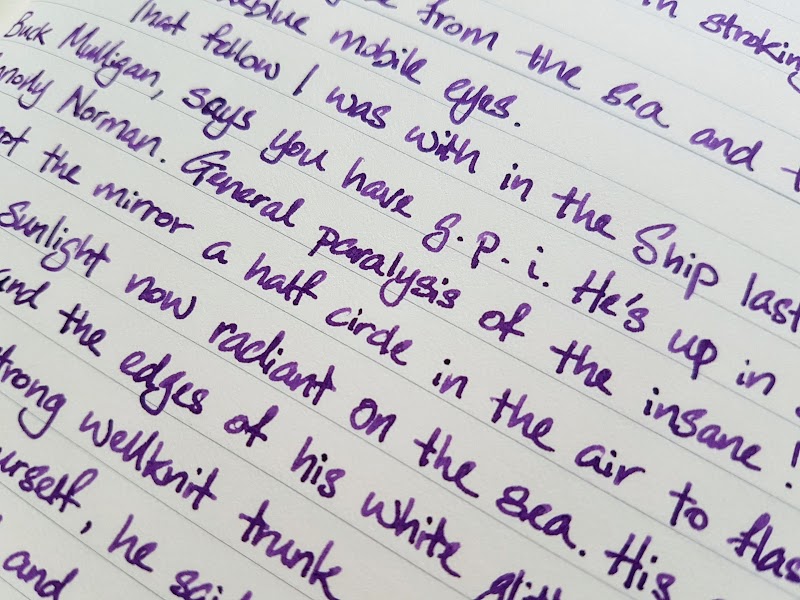 in stroking
from the sea and
mobile eyes.
That fellow I was with in the Ship last
Buck Mulligan, says you have g.p.i. He's up in
Norman. General paralysis of the insane!
the mirror a half circle in the air to flas
sunlight now radiant on the sea. His
and the edges of his white glitt
strong wellknit trunk
urself, he sai
and